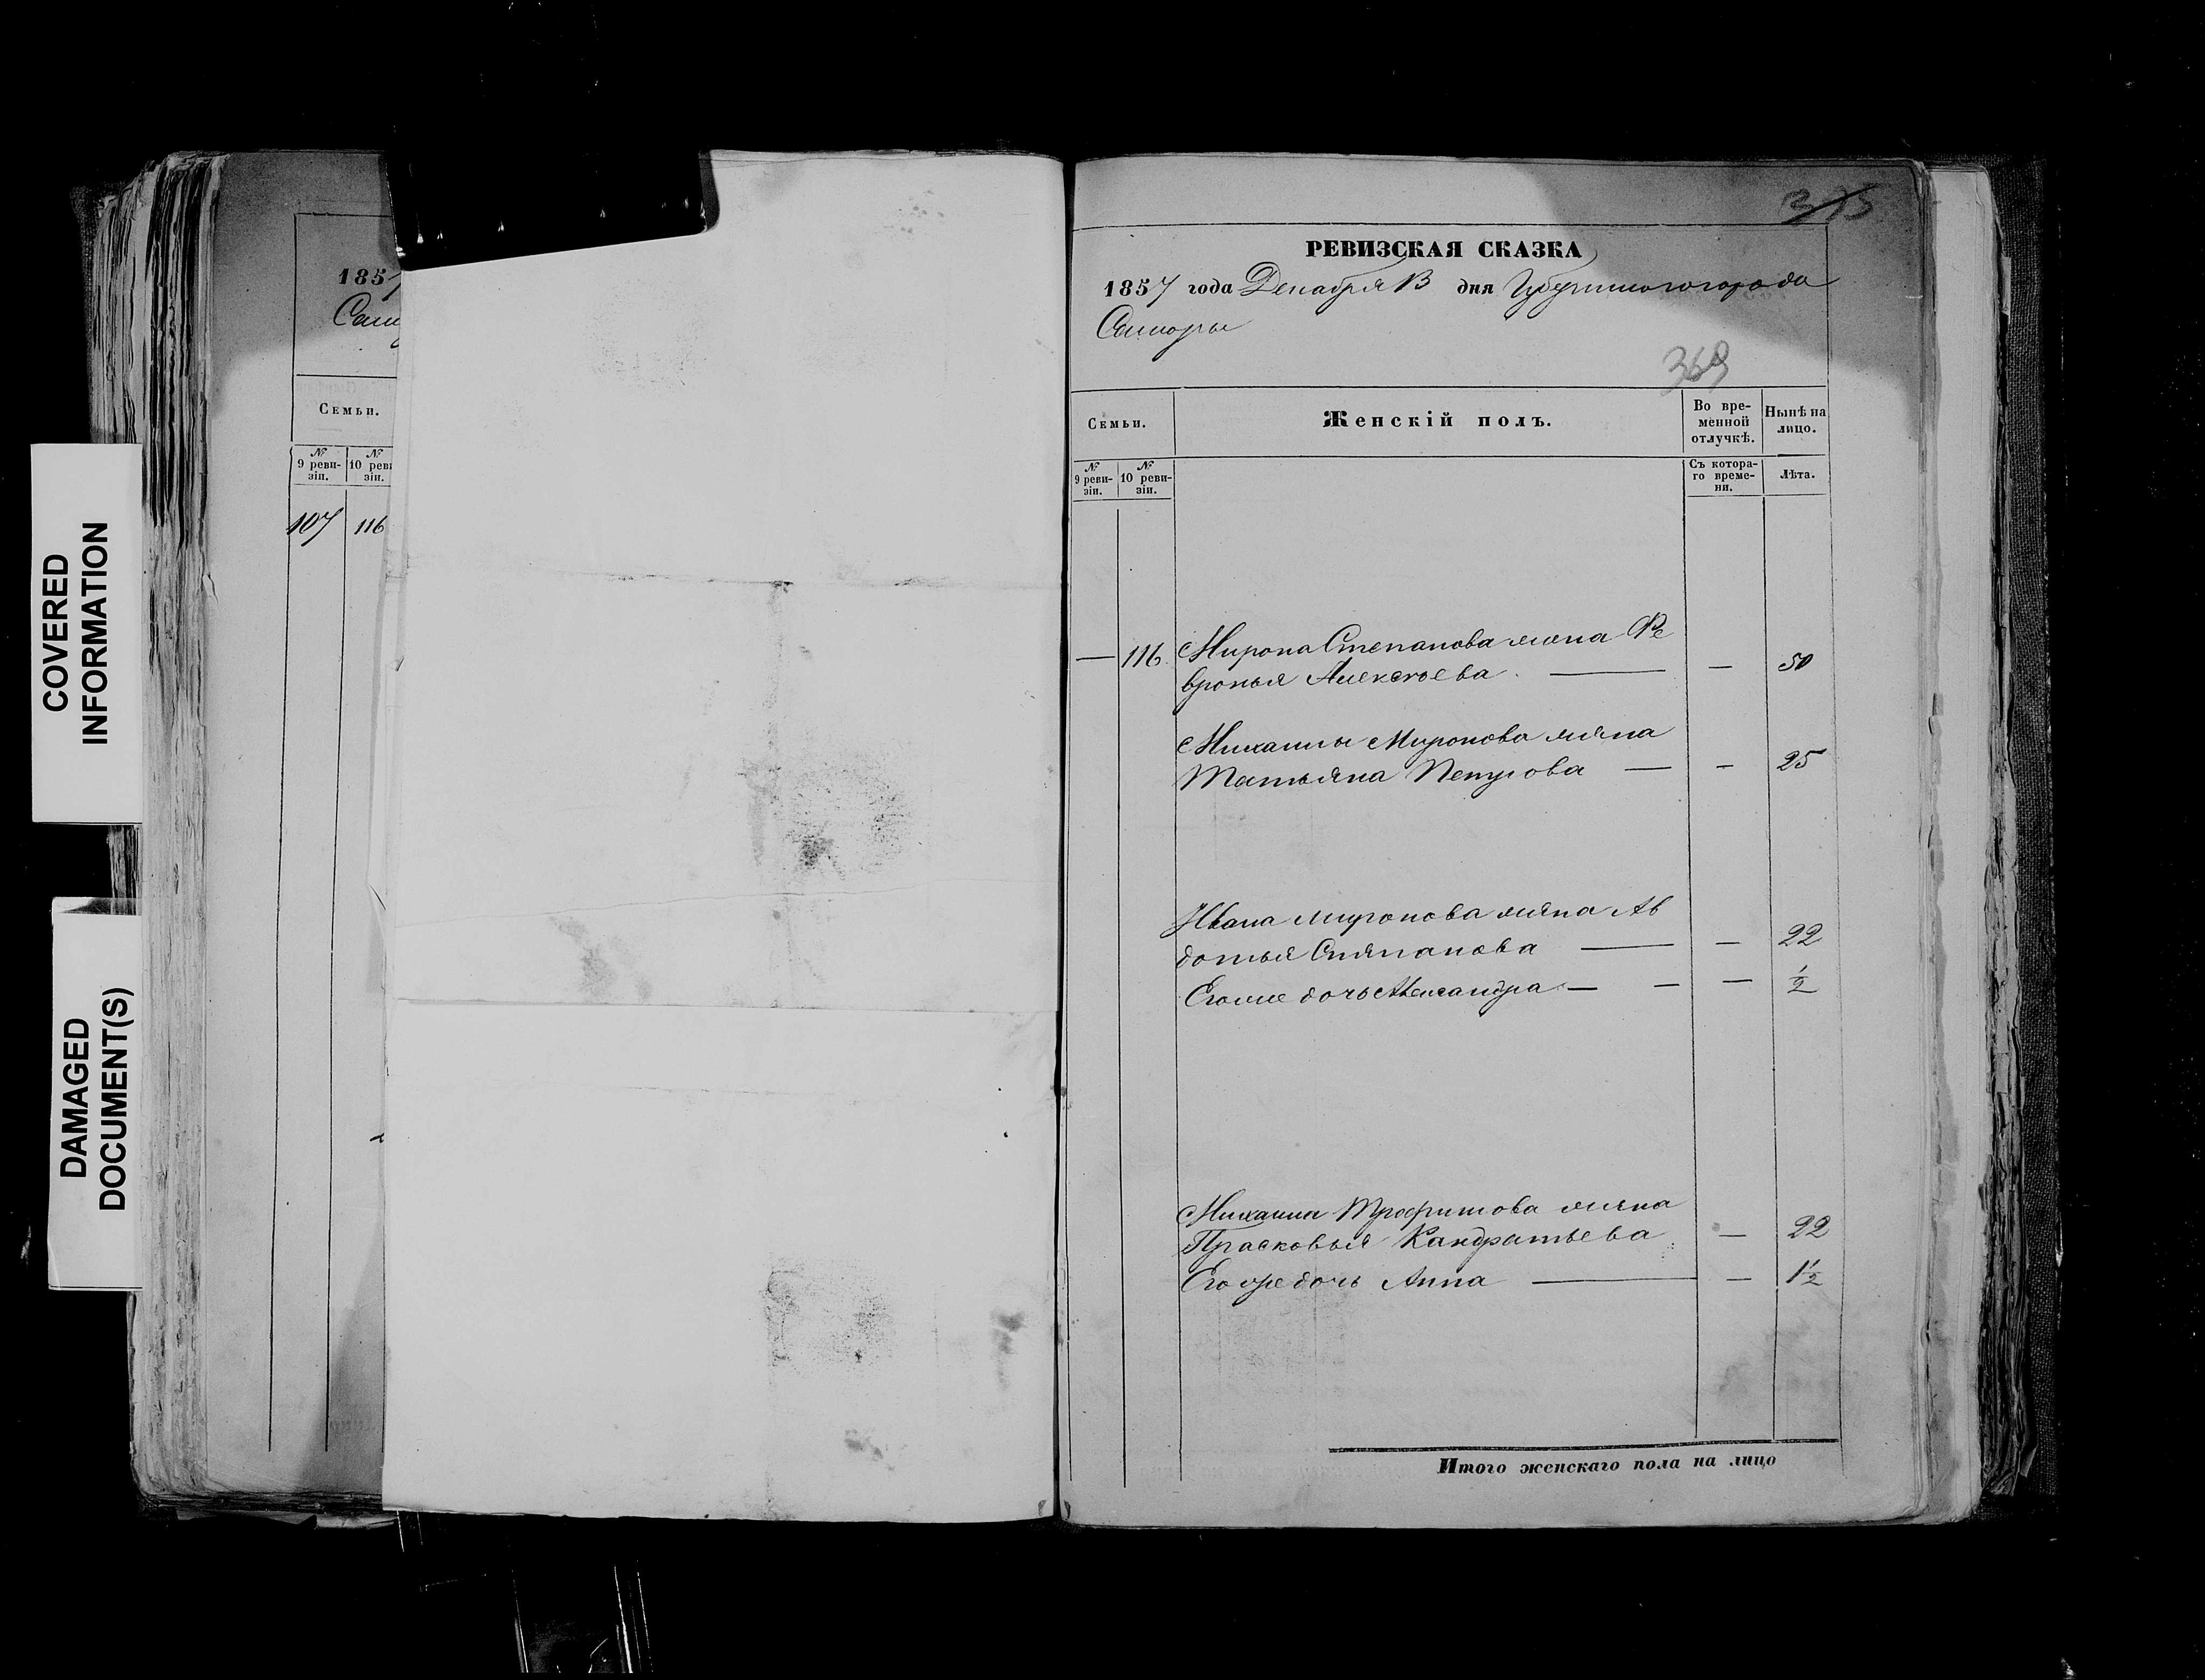 COVERED
INFORMATION
DAMAGED
DOCUMENT(S)
185
Сам
Семьи.
№ 9 реви-зіи.
№ 10 реви зіи.
107 116
375
РЕВИЗСКАЯ СКАЗКА
1857 года Декабря 13 дня Губернскаго города
Самары
369
Семьи.
Женскій полъ.
Во вре-
менной
отлучкѣ.
Нынѣ на
лицо.
№ 9 реви-зіи.
№ 10 реви-зіи.
Съ котора-
го време-
ни.
Лѣта.
— 116 Мирона Степанова жена Фе
вронья Алексѣева — — 50
Михаилы Миронова жена
Татьяна Петрова — — 25
Ивана Миронова жена Ав
дотья Степанова — — 22
Его же дочь Александра — — — 1/2
Михаила Трофимова жена
Прасковья Кандратьева — 22
Его же дочь Анна — — 1 1/2
Итого женскаго пола на лицо